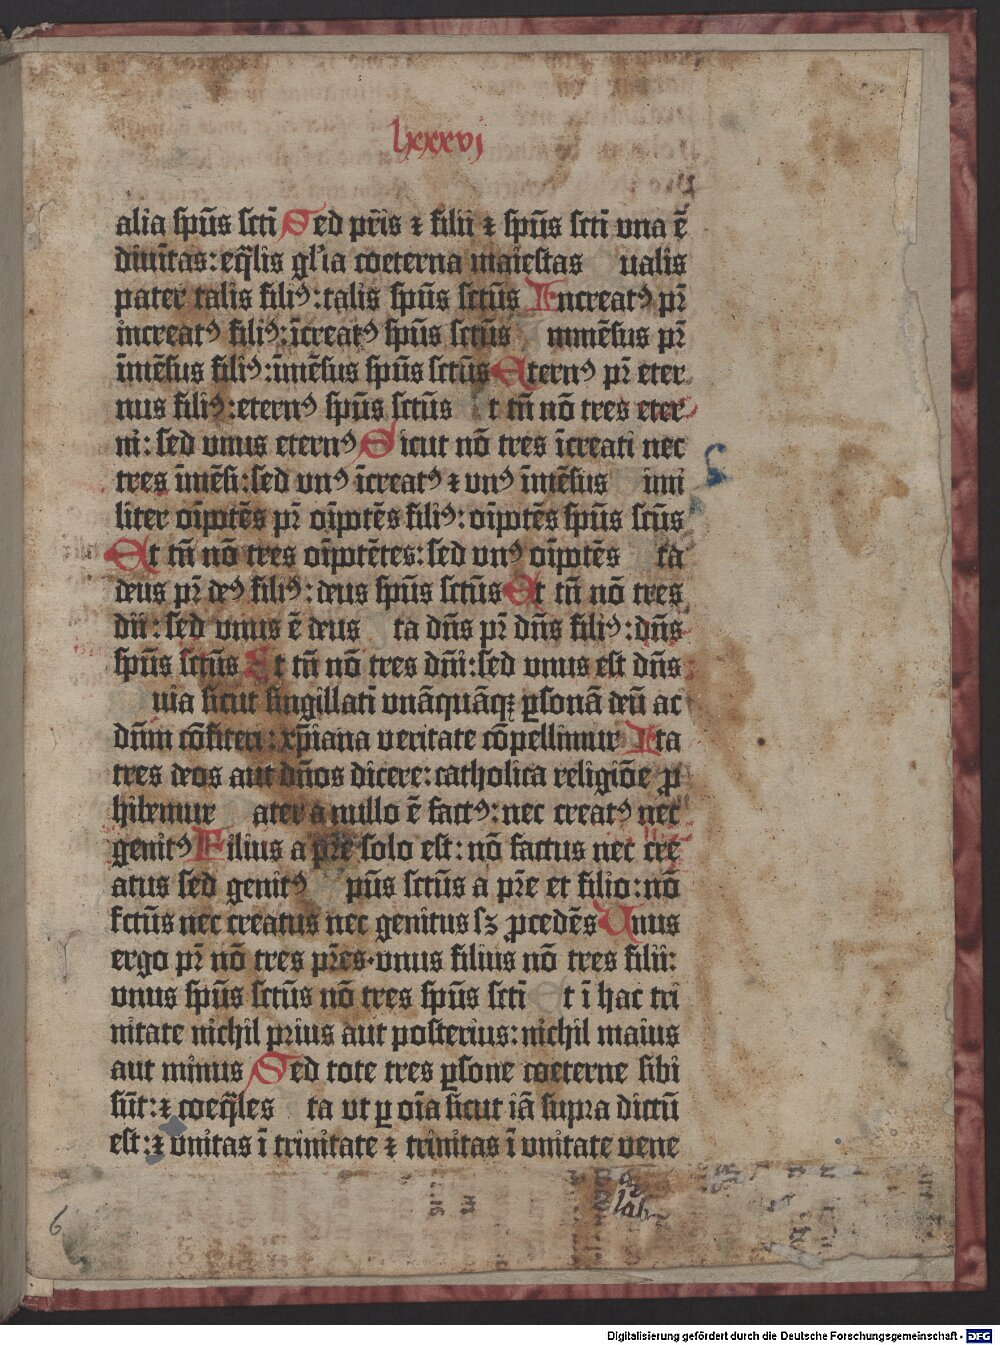 lxxxvj
alia spūs scti Sed pr̄is ⁊ filii ⁊ spūs scti vna ē
diuītas: eq̄lis gl̓ia coeterna maiestas ualis
pater talis filiꝰ: talis spūs sctūs Increatꝰ pr̄
increatꝰ filiꝰ: īcreatꝰ spūs sctūs mmēsus pr̄
īmēsus filiꝰ: īmēsus spūs sctūs Eternꝰ pr̄ eter
nus filiꝰ: eternꝰ spūs sctūs t tn̄ nō tres eter
ni: sed vnus eternꝰ Sicut nō tres īcreati nec
tres īmēsi: sed vnꝰ īcreatꝰ ⁊ vnꝰ īmēsus imi
liter oīpotēs pr̄ oīpotēs filiꝰ: oīpotēs spūs sctūs
Et tn̄ nō tres oīpotētes: sed vnꝰ oīpotēs ta
deus pr̄ deꝰ filiꝰ: deus spūs sctūs Et tn̄ nō tres
dii: sed vnus ē deus ta dn̄s pr̄ dn̄s filiꝰ: dn̄s
spūs sctūs Et tn̄ nō tres dn̄i: sed vnus est dn̄s
uia sicut singillati vnāquāqꝫ ꝑsonā deū ac
dn̄m cōfiteri: xp̄iana veritate cōpellimur Ita
tres deos aut dn̄os dicere: catholica religiōe ꝓ
hibemur ater a nullo ē factꝰ: nec creatꝰ nec
genitꝰ Filius a pr̄e solo est: nō factus nec cre
atus sed genitꝰ pūs sctūs a pr̄e et filio: nō
fctūs nec creatus nec genitus sꝫ ꝓcedēs Unus
ergo pr̄ nō tres pr̄es. vnus filius nō tres filii:
vnus spūs sctūs nō tres spūs scti Et ī hac tri
nitate nichil prius aut posterius: nichil maius
aut minus Sed tote tres ꝑsone coeterne sibi
sūt: ⁊ coeq̄les ta vt ꝑ oīa sicut iā supra dictū
est: ⁊ vnitas ī trinitate ⁊ trinitas ī vnitate vene
6
Digitalisierung gefördert durch die Deutsche Forschungsgemeinschaft - DFG